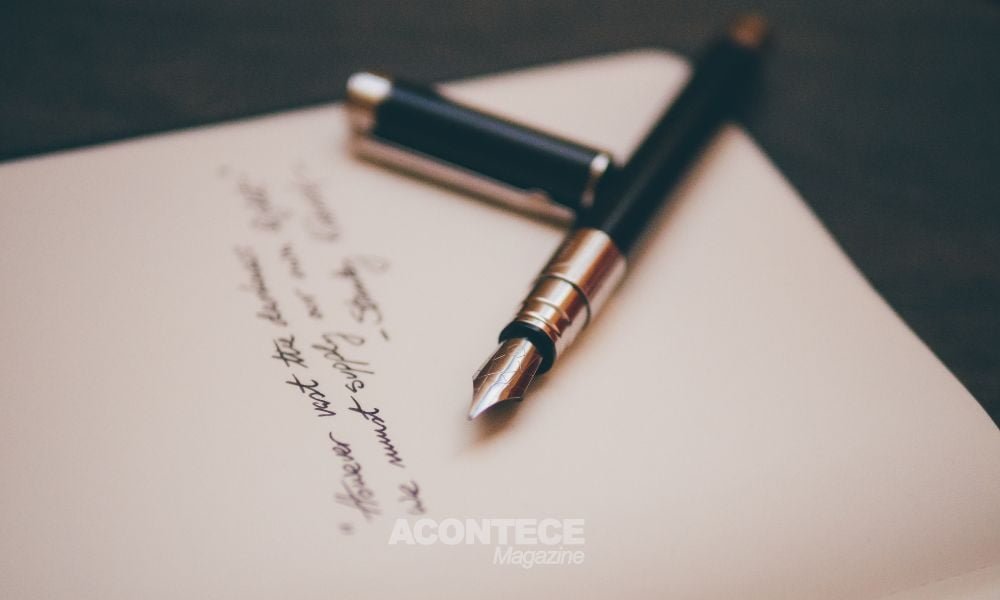 "However vast the darkness
we must supply our own light"
-Stanley
ACONTECE
Magazine